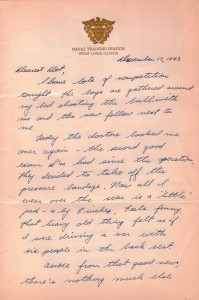 NAVAL TRAINING STATION
GREAT LAKES, ILLINOIS
December 12, 1943
Dearest Dot,
I have lots of competition
tonight. The boys are gathered around
my bed shooting the bull with
me and the new fellow next to
me.
Today the doctors looked me
over again - the second good
exam I've had since the operation
They decided to take off the
pressure bandage. Now all I
wear over the scar is a little
pad - 4 by 8 inches. Feels funny
that heavy old thing felt as if
I was driving a car with
six people in the back seat
Aside from that good news,
there's nothing much else